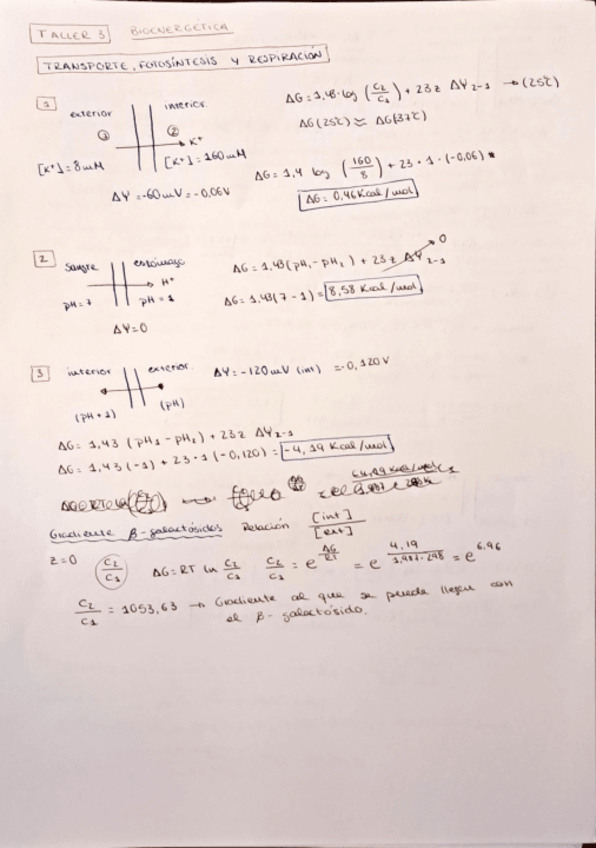 TALLER 3 BIOENERGÉTICA
TRANSPORTE, FOTOSÍNTESIS Y RESPIRACIÓN
1
exterior interior
① ②
K⁺
[K⁺] = 8 mM [K⁺] = 160 mM
ΔΨ = -60 mV = -0,06V
ΔG = 1,43·log (C₂/C₁) + 23z ΔΨ₂₋₁ → (25ºC)
ΔG (25ºC) ≈ ΔG(37ºC)
ΔG = 1,4 log (160/8) + 23 · 1 · (-0,06)
ΔG = 0,46 Kcal/mol
2
Sangre estómago
H⁺
pH = 7 pH = 1
ΔΨ = 0
ΔG = 1,43 (pH₁ - pH₂) + 23z ΔΨ₂₋₁ 0
ΔG = 1,43 (7 - 1) = 8,58 Kcal/mol
3
interior exterior
(pH + 1) (pH)
ΔΨ = -120 mV (int) = -0,120 V
ΔG = 1,43 (pH₁ - pH₂) + 23z ΔΨ₂₋₁
ΔG = 1,43 (-1) + 23 · 1 (-0,120) = -4,19 Kcal/mol
Gradiente β-galactósidos Relación [int]/[ext]
z = 0 C₂/C₁ ΔG = RT ln C₂/C₁ C₂/C₁ = e^(ΔG/RT) = e^(4,19/1,987·298) = e^6,96
C₂/C₁ = 1053,63 → Gradiente al que se puede llegar con
el β-galactósido.